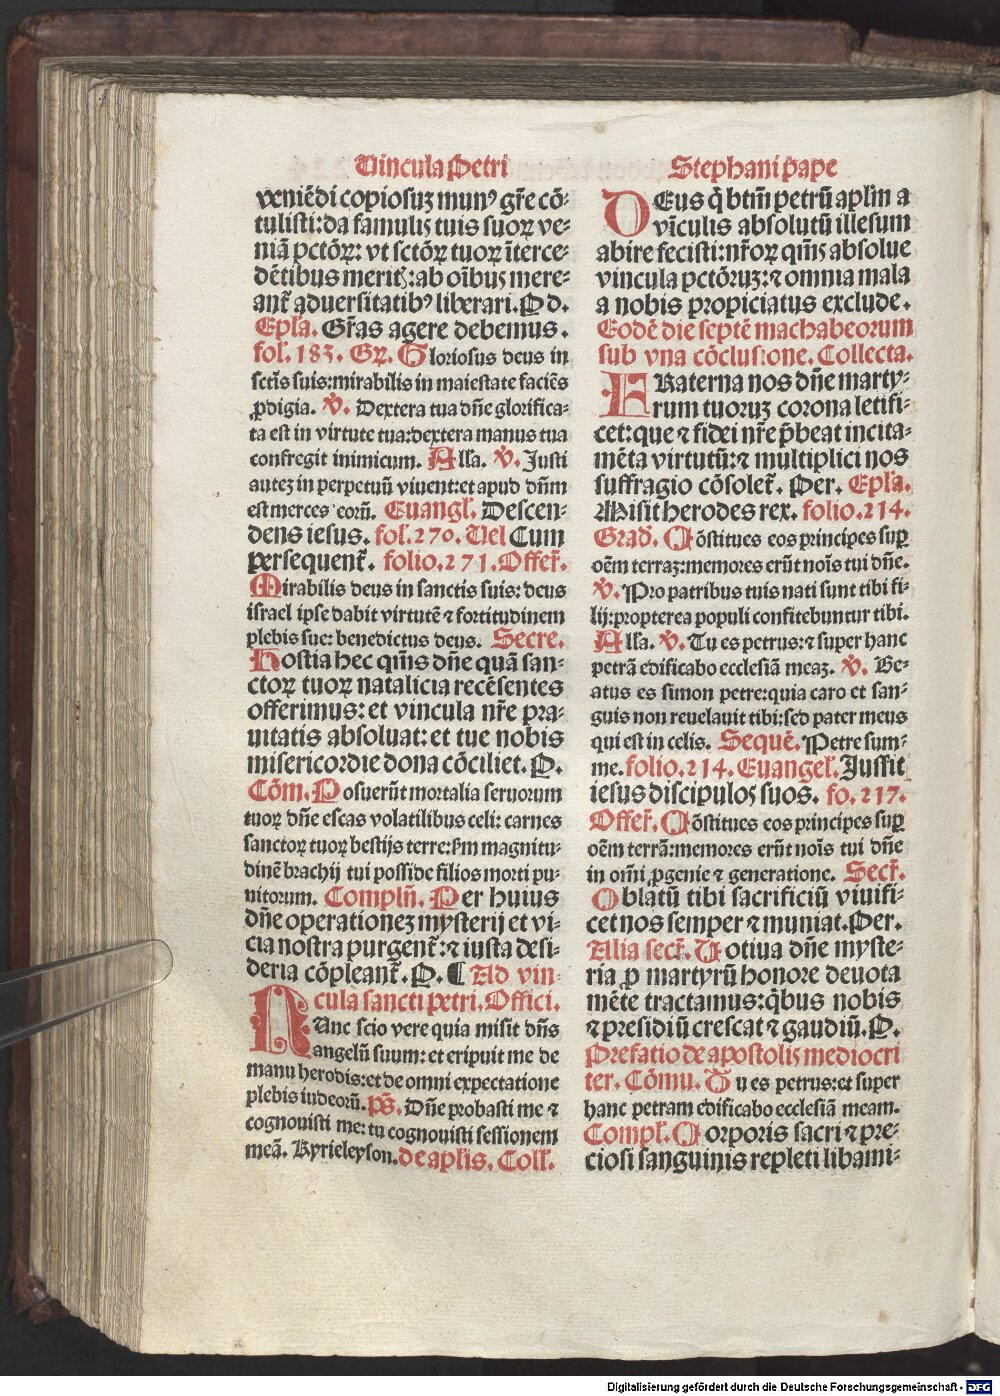 Uincula Petri
veniẽdi copiosuꝫ munꝰ gr̃e cõ-
tulisti: da famulis tuis suoꝝ ve-
niã pctõꝝ: vt sctõꝝ tuoꝝ ĩterce-
dẽtibus meritꝭ: ab oĩbus mere-
ant̃ aduersitatibꝰ liberari. P d.
Epl̃a. Gr̃as agere debemus.
fol. 183. Gꝝ. Gloriosus deus in
sctĩs suis: mirabilis in maiestate faciẽs
ꝓdigia. V̾. Dextera tua dñe glorifica-
ta est in virtute tua: dextera manus tua
confregit inimicum. Alľa. V̾. Justi
auteꝫ in perpetuũ viuent: et apud dñm
est merces eorũ. Euangľ. Descen-
dens iesus. fol. 270. Uel Cum
persequent̃. folio. 271. Offer̃.
Mirabilis deus in sanctis suis: deus
israel ipse dabit virtutẽ ⁊ fortitudinem
plebis sue: benedictus deus. Secre.
Hostia hec qm̃s dñe quã san-
ctoꝝ tuoꝝ natalicia recẽsentes
offerimus: et vincula nr̃e pra-
uitatis absoluat: et tue nobis
misericordie dona cõciliet. P.
Cõm. Posuerũt mortalia seruorum
tuoꝝ dñe escas volatilibus celi: carnes
sanctoꝝ tuoꝝ bestijs terre: s̃m magnitu-
dinẽ brachij tui posside filios morti pu-
nitorum. Complñ. Per huius
dñe operationeꝫ mysterij et vi-
cia nostra purgent̃: ⁊ iusta desi-
deria cõpleant̃. P. ¶ Ad vin-
cula sancti petri. Offici.
NUnc scio vere quia misit dñs
angelũ suum: et eripuit me de
manu herodis: et de omni expectatione
plebis iudeorũ. Ps̃. Dñe probasti me ⁊
cognouisti me: tu cognouisti sessionem
meã. Kyrieleyson. de apľis. Colľ.
Stephani pape
DEus q̃ btm̃ petrũ aplm̃ a
vĩculis absolutũ illesum
abire fecisti: nr̃oꝝ qm̃s absolue
vincula pctõruꝫ: ⁊ omnia mala
a nobis propiciatus exclude.
Eodẽ die septẽ machabeorum
sub vna cõclusione. Collecta.
FRaterna nos dñe marty-
rum tuoruꝫ corona letifi-
cet: que ⁊ fidei nr̃e p̃beat incita-
mẽta virtutũ: ⁊ multiplici nos
suffragio cõsolet̃. Per. Epl̃a.
Misit herodes rex. folio. 214.
Grad̃. Cõstitues eos principes suꝑ
oẽm terraꝫ: memores erũt noĩs tui dñe.
V̾. Pro patribus tuis nati sunt tibi fi-
lij: propterea populi confitebuntur tibi.
Alľa. V̾. Tu es petrus: ⁊ super hanc
petrã edificabo ecclesiã meaꝫ. V̾. Be-
atus es simon petre: quia caro et san-
guis non reuelauit tibi: sed pater meus
qui est in celis. Sequẽ. Petre sum-
me. folio. 214. Euangeľ. Jussit
iesus discipulos suos. fo. 217.
Offer̃. Cõstitues eos principes suꝑ
oẽm terrã: memores erũt noĩs tui dñe
in omĩ ꝓgenie ⁊ generatione. Secr̃.
Oblatũ tibi sacrificiũ viuifi-
cet nos semper ⁊ muniat. Per.
Alia secr̃. Uotiua dñe myste-
ria ꝓ martyrũ honore deuota
mẽte tractamus: q̃bus nobis
⁊ presidiũ crescat ⁊ gaudiũ. P.
Prefatio de apostolis mediocri
ter. Cõmu. Tu es petrus: et super
hanc petram edificabo ecclesiã meam.
Compľ. Corporis sacri ⁊ pre-
ciosi sanguinis repleti libami-
Digitalisierung gefördert durch die Deutsche Forschungsgemeinschaft - DFG